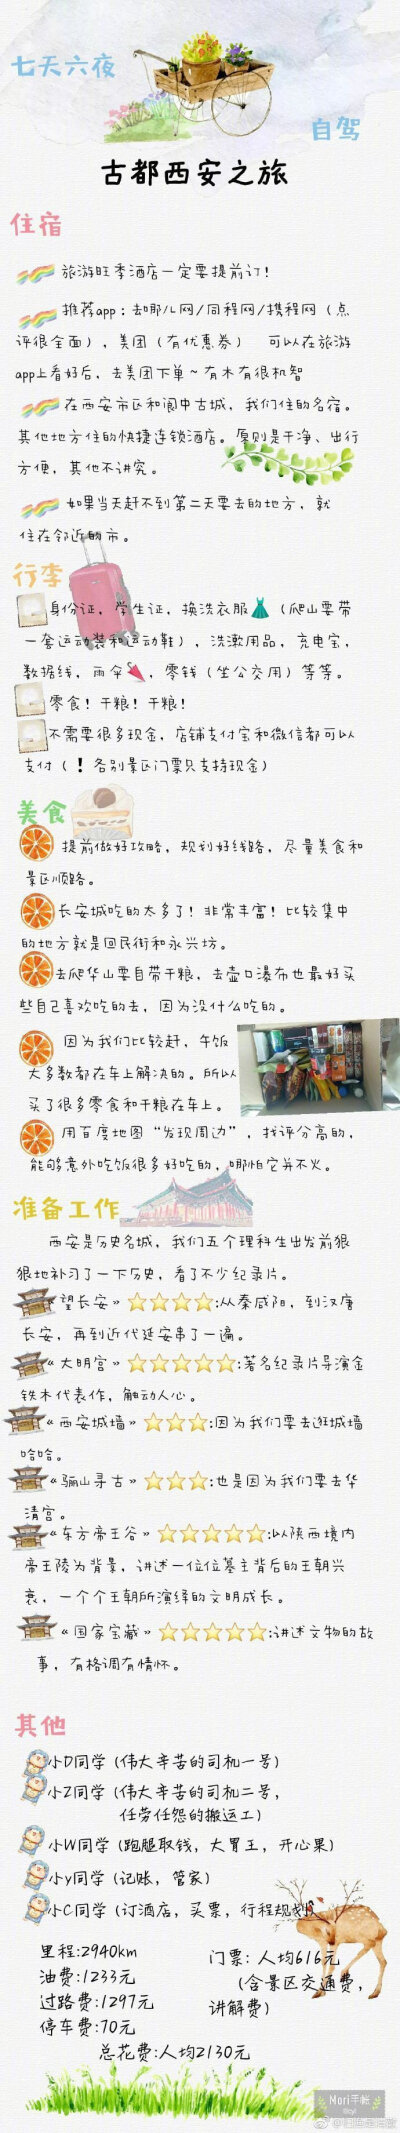 七天六夜
自驾
古都西安之旅
住宿
旅游旺季酒店一定要提前订!
推荐app:去哪儿网/同程网/携程网(点
评很全面),美团(有优惠券) 可以在旅游
app上看好后,去美团下单~有木有很机智
在西安市区和阆中古城,我们住的名宿。
其他地方住的快捷连锁酒店。原则是干净、出行
方便,其他不讲究。
如果当天赶不到第二天要去的地方,就
住在邻近的市。
行李
身份证,学生证,换洗衣服(爬山要带
一套运动装和运动鞋),洗漱用品,充电宝,
数据线,雨伞,零钱(坐公交用)等等。
零食!干粮!干粮!
不需要很多现金,店铺支付宝和微信都可以
支付(!各别景区门票只支持现金)
美食
提前做好攻略,规划好线路,尽量美食和
景区顺路。
长安城吃的太多了!非常丰富!比较集中
的地方就是回民街和永兴坊。
去爬华山要自带干粮,去壶口瀑布也最好买
些自己喜欢吃的去,因为没什么吃的。
因为我们比较赶,午饭
大多数都在车上解决的。所以
买了很多零食和干粮在车上。
用百度地图“发现周边”,找评分高的,
能够意外吃饭很多好吃的,哪怕它并不火。
准备工作
西安是历史名城,我们五个理科生出发前狠
狠地补习了一下历史,看了不少纪录片。
望长安》:从秦咸阳,到汉唐
长安,再到近代延安串了一遍。
《大明宫》:著名纪录片导演金
铁木代表作,触动人心。
《西安城墙》:因为我们要去逛城墙
哈哈。
《骊山寻古》:也是因为我们要去华
清宫。
《东方帝王谷》:以陕西境内
帝王陵为背景,讲述一位位墓主背后的王朝兴
衰,一个个王朝所演绎的文明成长。
《国家宝藏》:讲述文物的故
事,有格调有情怀。
其他
小D同学(伟大辛苦的司机一号)
小Z同学(伟大辛苦的司机二号,
任劳任怨的搬运工)
小W同学(跑腿取钱,大胃王,开心果)
小y同学(记账,管家)
小C同学(订酒店,买票,行程规划)
里程:2940km
油费:1233元
过路费:1297元
停车费:70元
门票:人均616元
(含景区交通费,
讲解费)
总花费:人均2130元
Mori手帐